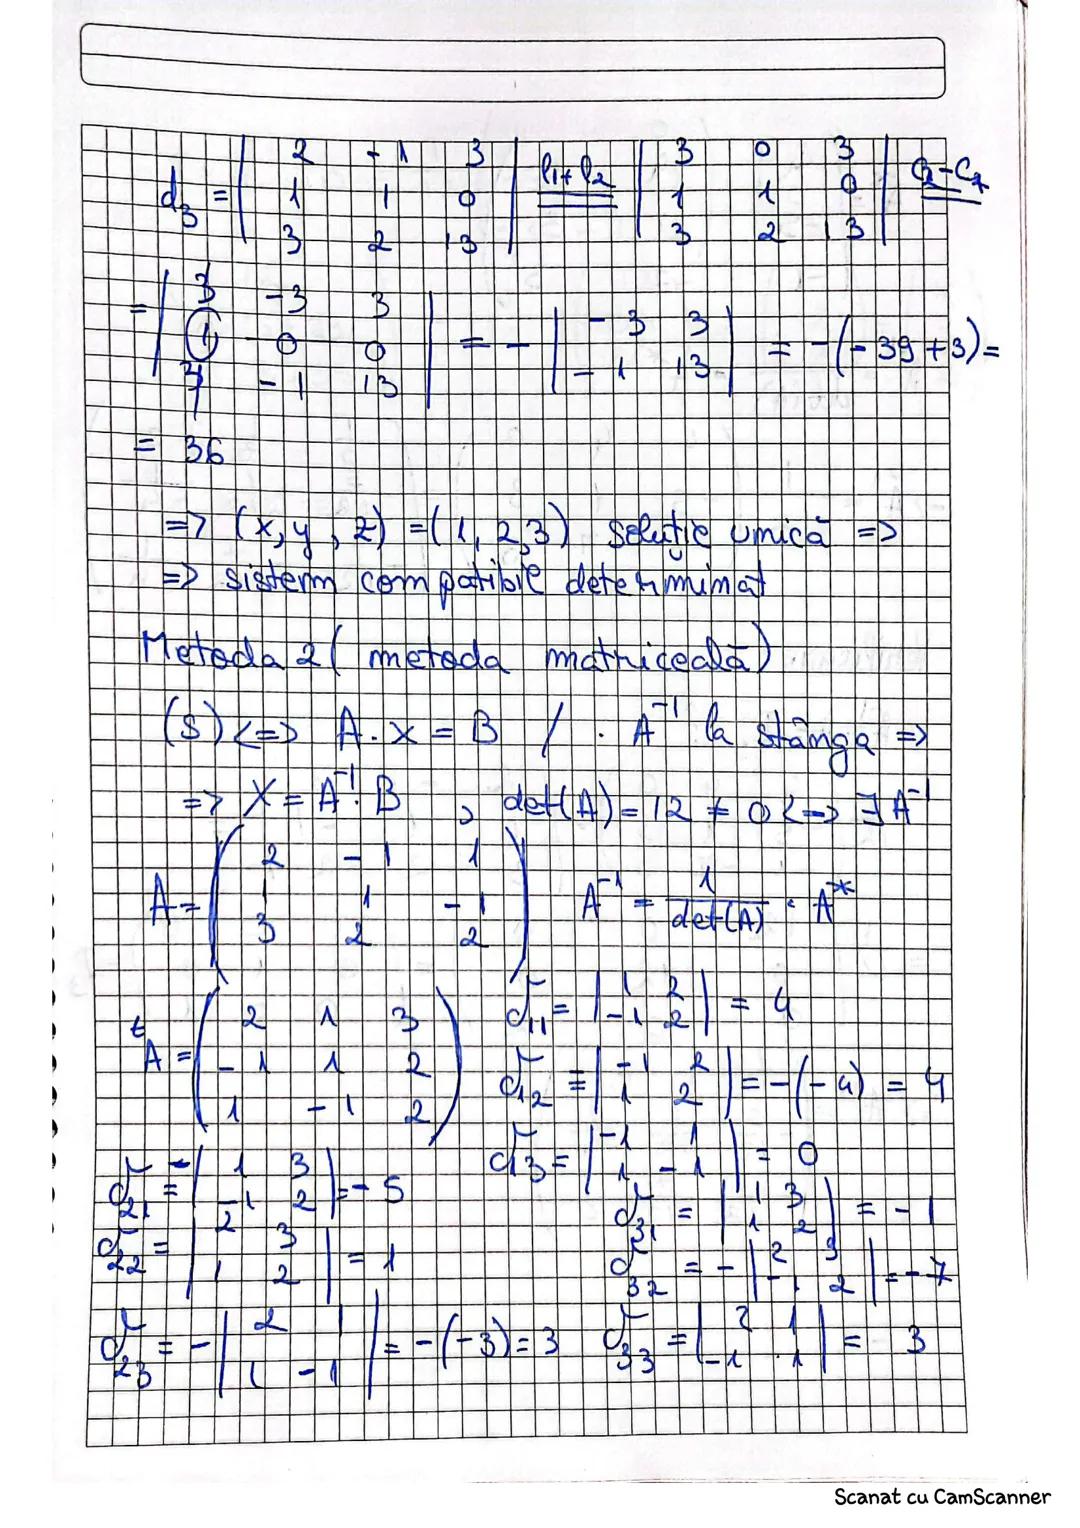 d₃ = | 2 -1 3 ; 1 1 0 ; 3 2 13 | l₁+l₂ | 3 0 3 ; 1 1 0 ; 3 2 13 | C₂-C₁
= | 3 -3 3 ; 1 0 0 ; -1 13 | = - | -3 3 ; -1 13 | = -(-39+3) =
= 36
=> (x, y, z) = (1, 2, 3) soluție unică =>
=> sistem compatibil determinat
Metoda 2 (metoda matriceală)
(S) <=> A · X = B / · A⁻¹ la stânga =>
=> X = A⁻¹ · B , det(A) = 12 ≠ 0 <=> ∃ A⁻¹
A = ( 2 -1 1 ; 1 1 -1 ; 3 2 2 ) A⁻¹ = 1/det(A) · A*
ᵗA = ( 2 1 3 ; -1 1 2 ; 1 -1 2 )
δ₁₁ = | 1 2 ; -1 2 | = 4
δ₁₂ = | -1 2 ; 1 2 | = -(-4) = 4
δ₁₃ = | -1 1 ; 1 -1 | = 0
δ₂₁ = - | 1 3 ; -1 2 | = -5
δ₃₁ = | 1 3 ; 1 2 | = -1
δ₂₂ = | 2 3 ; 1 2 | = 1
δ₃₂ = - | 2 3 ; -1 2 | = -7
δ₂₃ = - | 2 1 ; 1 -1 | = -(-3) = 3
δ₃₃ = | 2 1 ; -1 1 | = 3
Scanat cu CamScanner